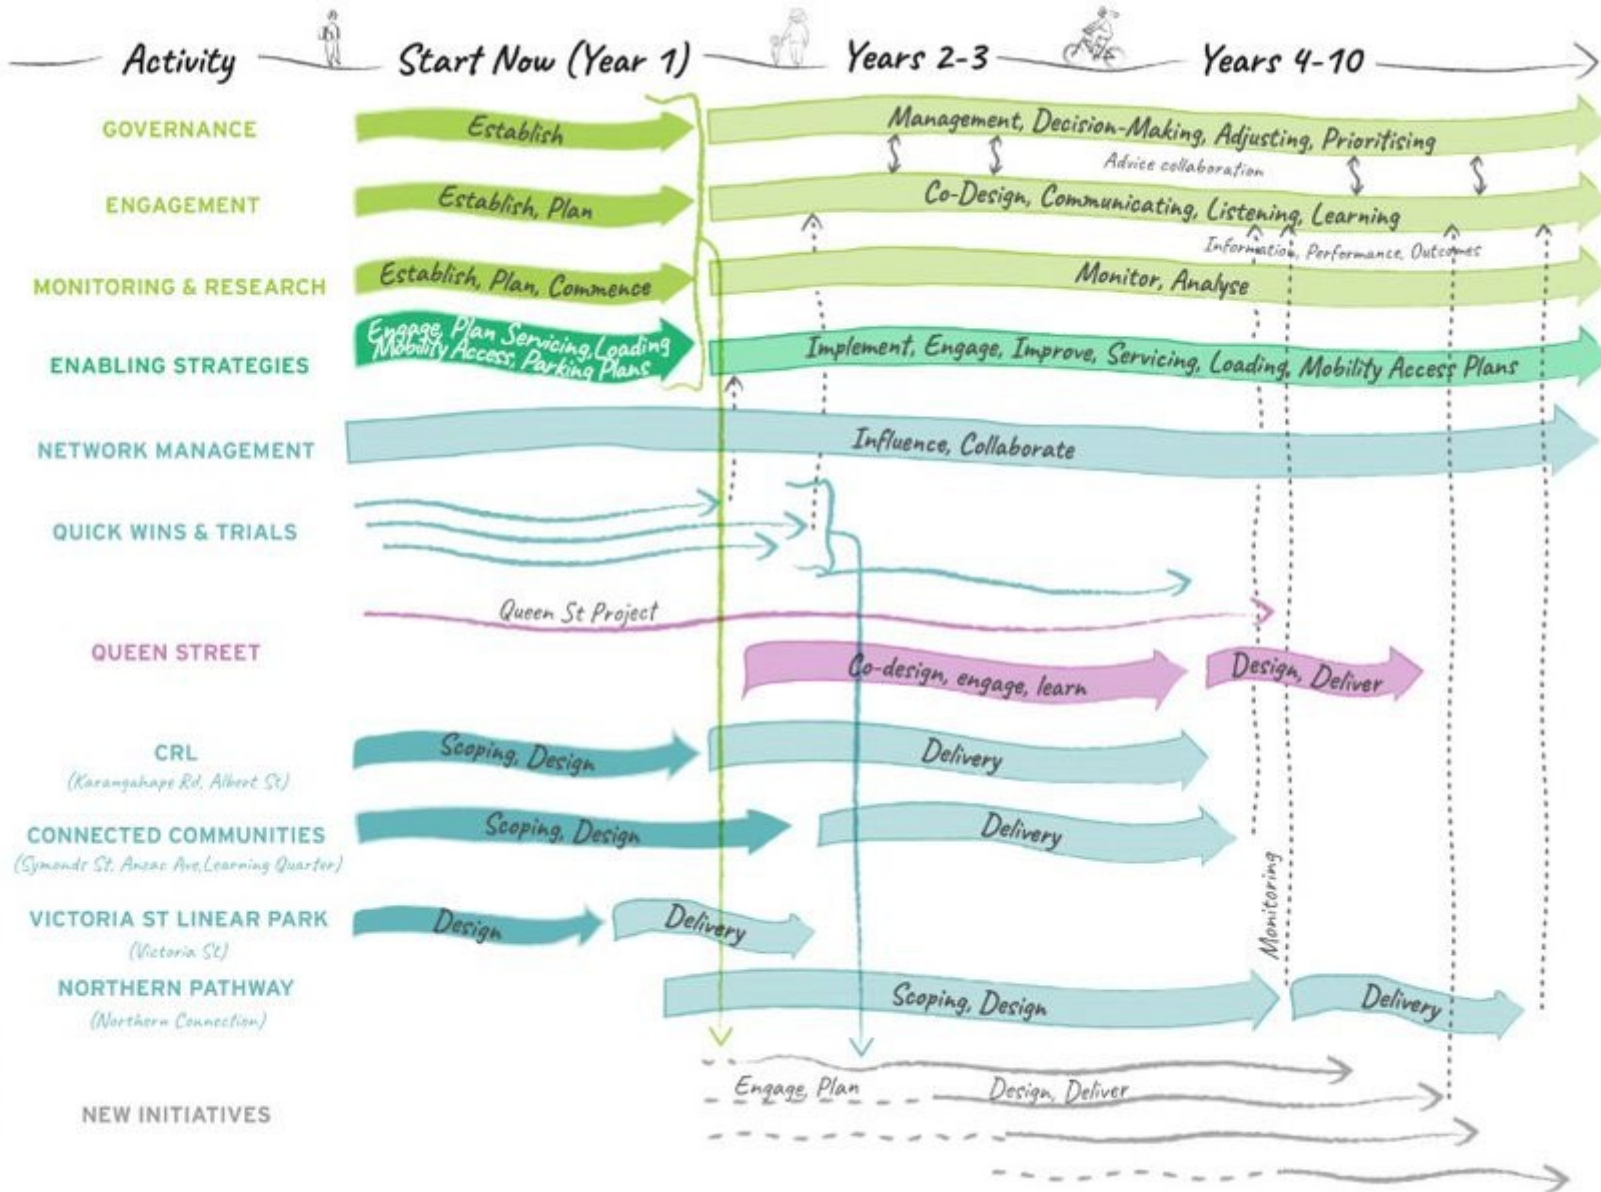 Activity
Start Now (Year 1)
Years 2-3
Years 4-10
GOVERNANCE
Establish
Management, Decision-Making, Adjusting, Prioritising
Advice collaboration
ENGAGEMENT
Establish, Plan
Co-Design, Communicating, Listening, Learning
Information, Performance, Outcomes
MONITORING & RESEARCH
Establish, Plan, Commence
Monitor, Analyse
ENABLING STRATEGIES
Engage, Plan Servicing, Loading
Mobility Access, Parking Plans
Implement, Engage, Improve, Servicing, Loading, Mobility Access Plans
NETWORK MANAGEMENT
Influence, Collaborate
QUICK WINS & TRIALS
Queen St Project
QUEEN STREET
Co-design, engage, learn
Design, Deliver
CRL
(Karangahape Rd, Albert St)
Scoping, Design
Delivery
CONNECTED COMMUNITIES
(Symonds St, Anzac Ave, Learning Quarter)
Scoping, Design
Delivery
Monitoring
VICTORIA ST LINEAR PARK
(Victoria St)
Design
Delivery
NORTHERN PATHWAY
(Northern Connection)
Scoping, Design
Delivery
NEW INITIATIVES
Engage, Plan
Design, Deliver